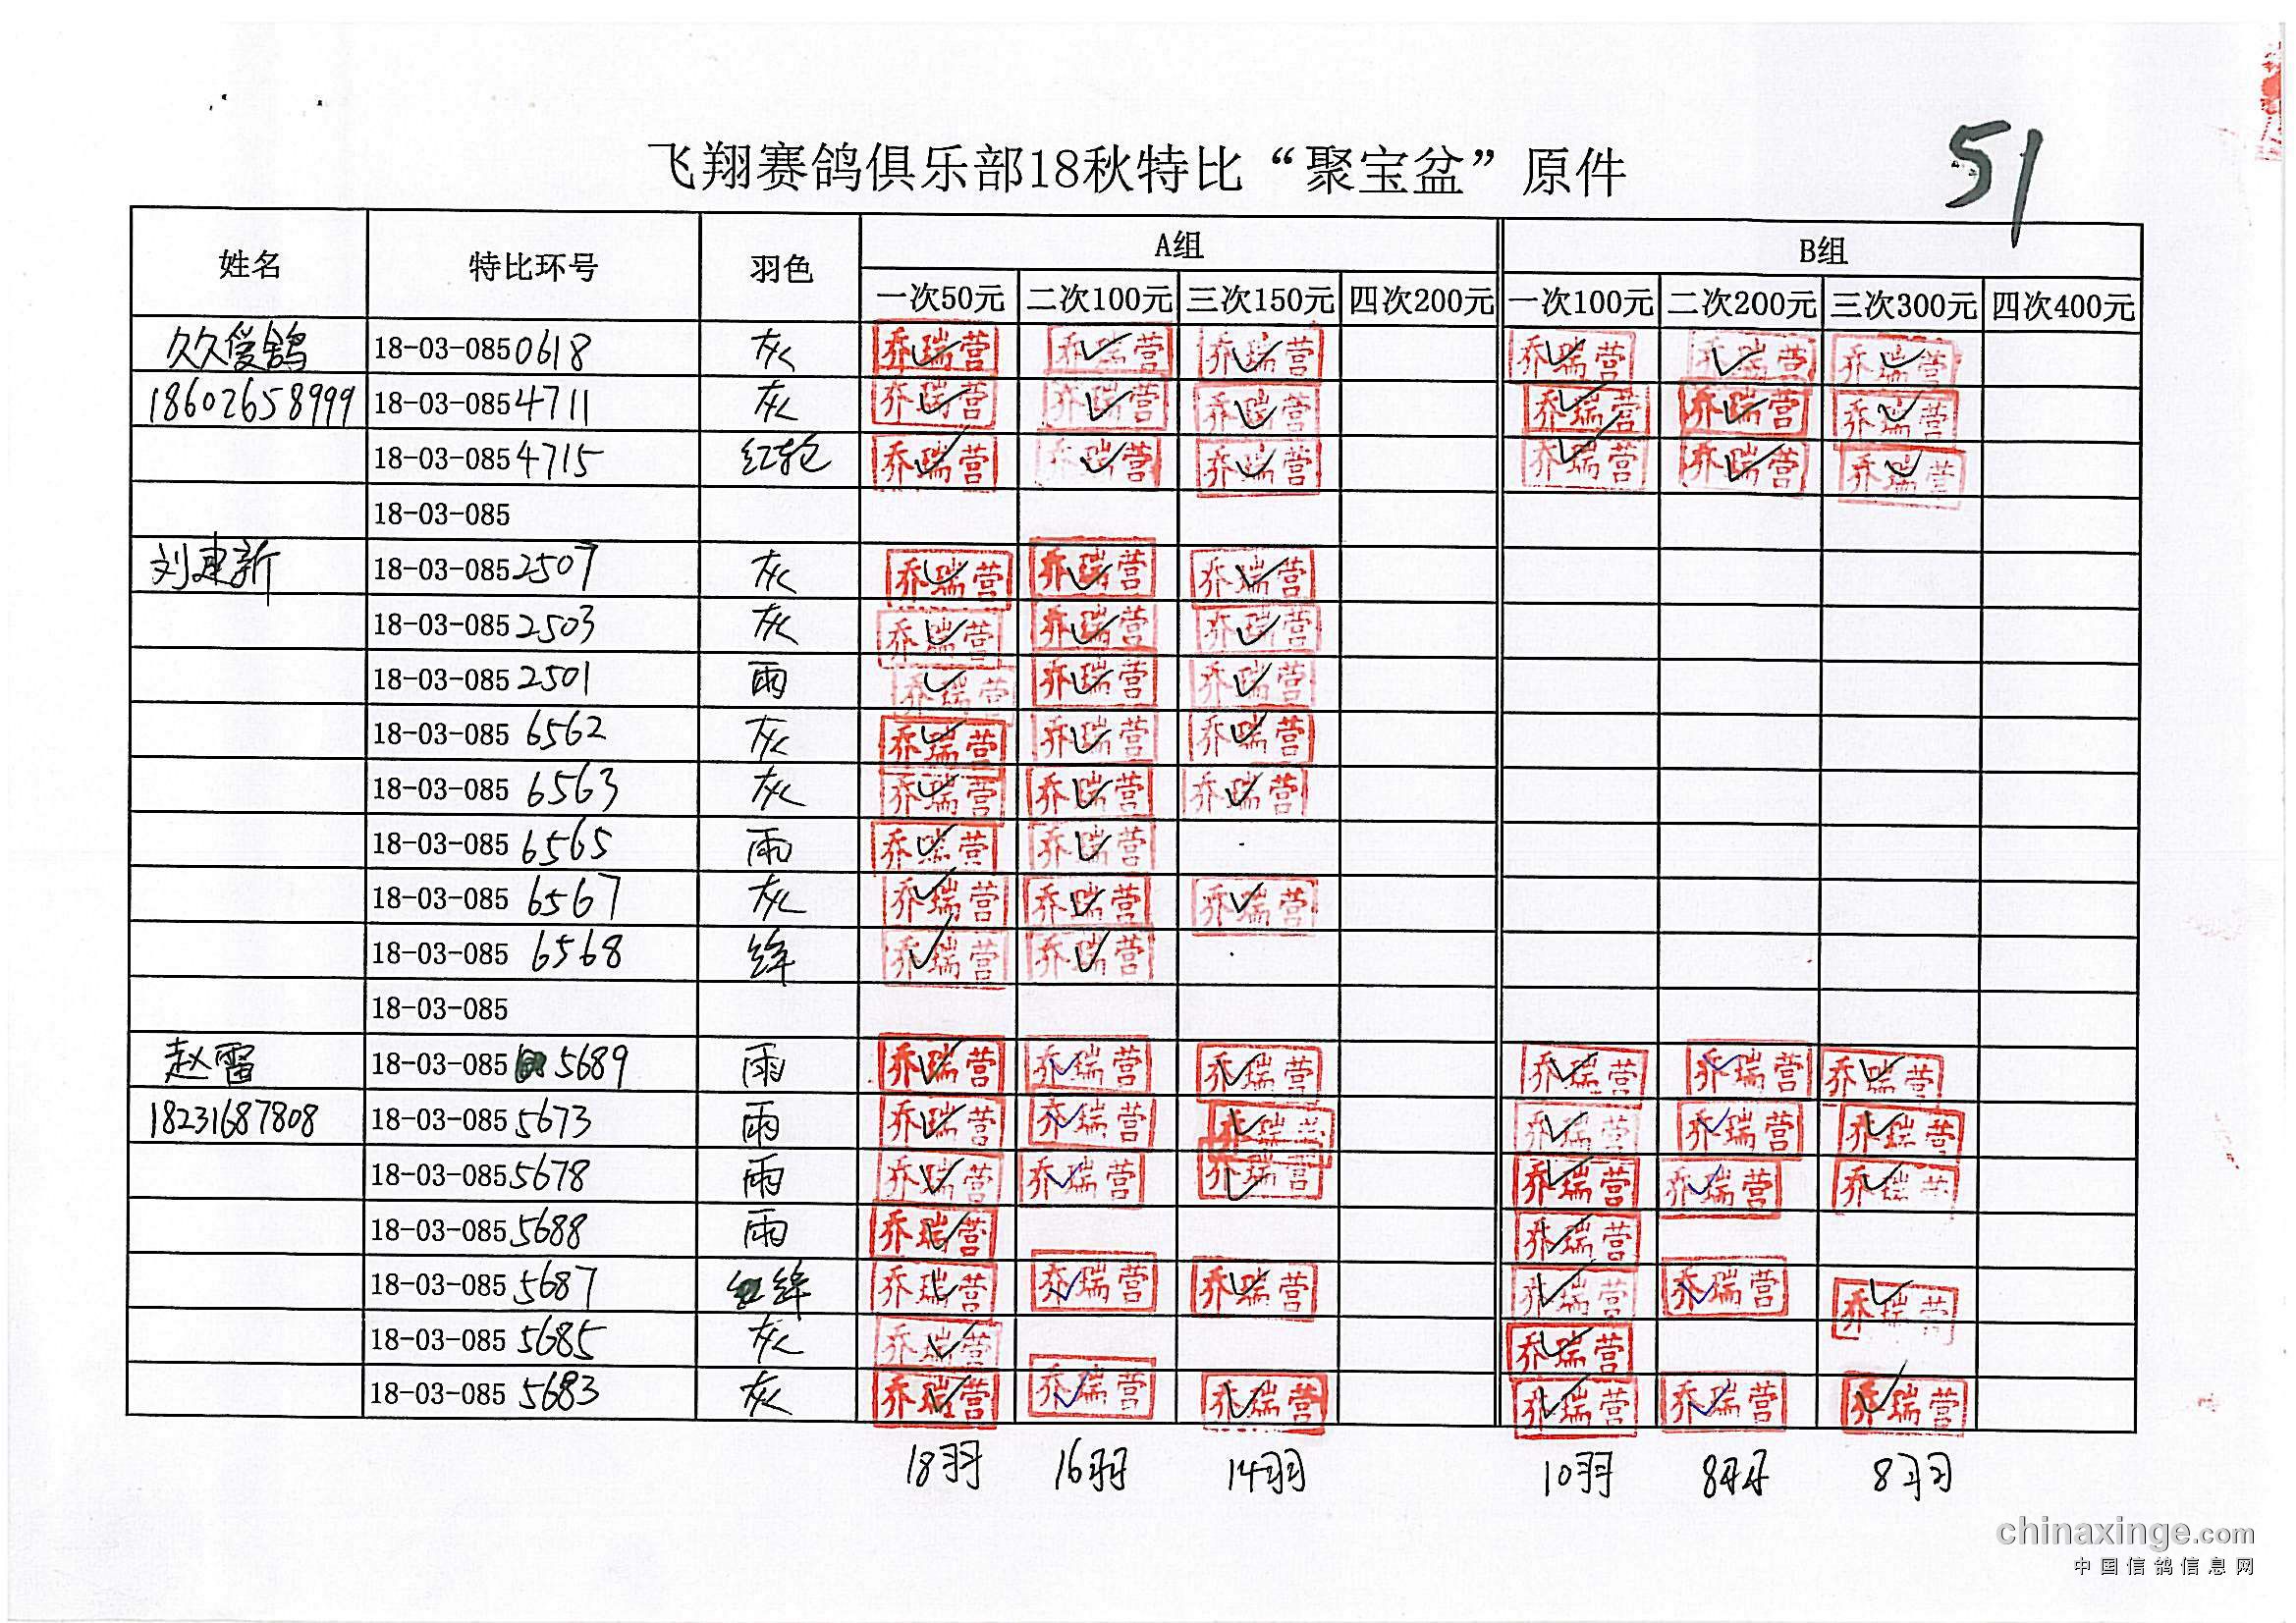 51
飞翔赛鸽俱乐部18秋特比“聚宝盆”原件
姓名 特比环号 羽色 A组 B组
一次50元 二次100元 三次150元 四次200元 一次100元 二次200元 三次300元 四次400元
久久爱鸽 18-03-085 0618 灰 乔瑞营 乔瑞营 乔瑞营 乔瑞营 乔瑞营 乔瑞营
18602658999 18-03-085 4711 灰 乔瑞营 乔瑞营 乔瑞营 乔瑞营 乔瑞营 乔瑞营
18-03-085 4715 红轮 乔瑞营 乔瑞营 乔瑞营 乔瑞营 乔瑞营 乔瑞营
18-03-085
刘建新 18-03-085 2507 灰 乔瑞营 乔瑞营 乔瑞营
18-03-085 2503 灰 乔瑞营 乔瑞营 乔瑞营
18-03-085 2501 雨 乔瑞营 乔瑞营 乔瑞营
18-03-085 6562 灰 乔瑞营 乔瑞营 乔瑞营
18-03-085 6563 灰 乔瑞营 乔瑞营 乔瑞营
18-03-085 6565 雨 乔瑞营 乔瑞营
18-03-085 6567 灰 乔瑞营 乔瑞营 乔瑞营
18-03-085 6568 绛 乔瑞营 乔瑞营
18-03-085
赵雷 18-03-085 5689 雨 乔瑞营 乔瑞营 乔瑞营 乔瑞营 乔瑞营 乔瑞营
18231687808 18-03-085 5673 雨 乔瑞营 乔瑞营 乔瑞营 乔瑞营 乔瑞营 乔瑞营
18-03-085 5678 雨 乔瑞营 乔瑞营 乔瑞营 乔瑞营 乔瑞营 乔瑞营
18-03-085 5688 雨 乔瑞营 乔瑞营
18-03-085 5687 绛 乔瑞营 乔瑞营 乔瑞营 乔瑞营 乔瑞营 乔瑞营
18-03-085 5685 灰 乔瑞营 乔瑞营
18-03-085 5683 灰 乔瑞营 乔瑞营 乔瑞营 乔瑞营 乔瑞营 乔瑞营
18羽 16羽 14羽 10羽 8羽 8羽
chinaxinge.com
中国信鸽信息网